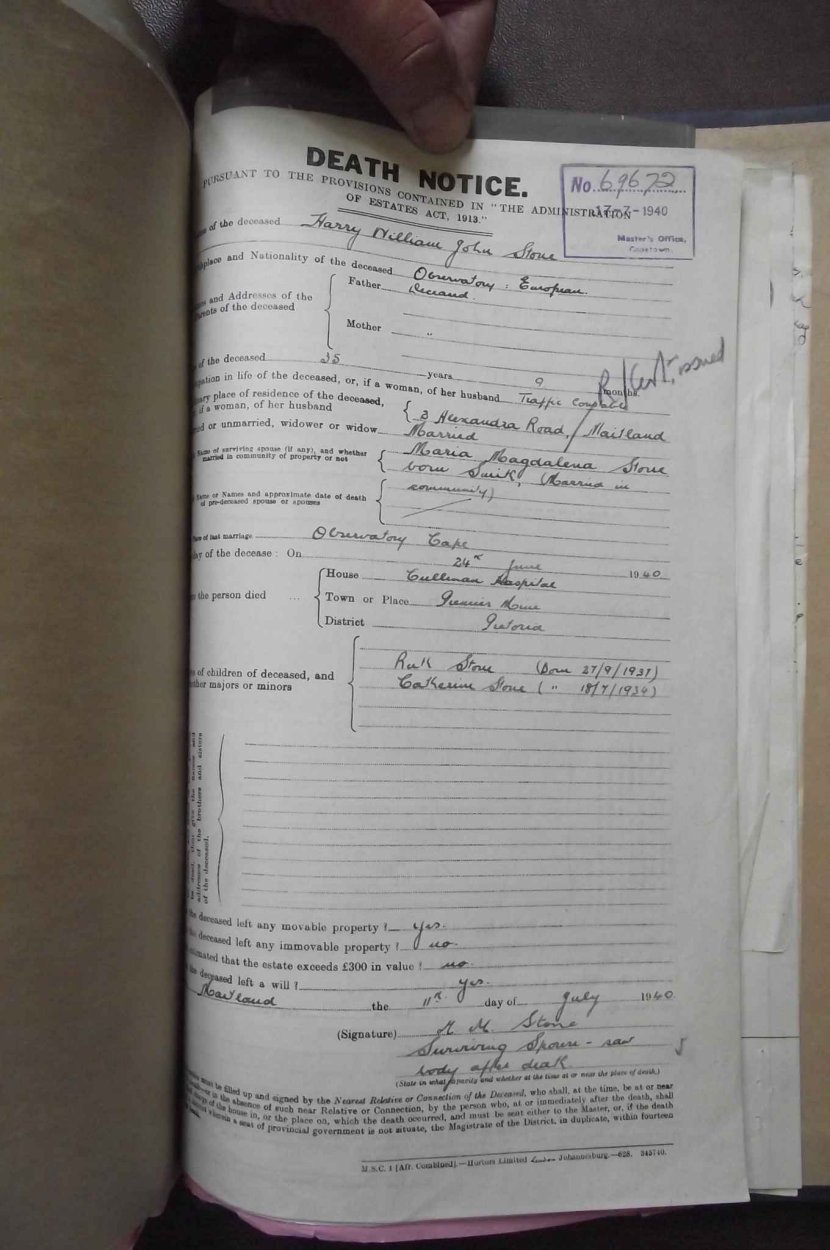 DEATH NOTICE.
PURSUANT TO THE PROVISIONS CONTAINED IN "THE ADMINISTRATION
OF ESTATES ACT, 1913."
No. 69672
17-7-1940
Master's Office,
Capetown.
of the deceased Harry William John Stone
place and Nationality of the deceased Observatory : European.
and Addresses of the
Parents of the deceased
Father Deceased.
Mother "
of the deceased 35 years 9 months.
issued
pation in life of the deceased, or, if a woman, of her husband Traffic Constable
ary place of residence of the deceased,
if a woman, of her husband
3 Alexandra Road, Maitland
ed or unmarried, widower or widow Married
Name of surviving spouse (if any), and whether
married in community of property or not
Maria Magdalena Stone
born Smit, (Married in
community)
Name or Names and approximate date of death
of pre-deceased spouse or spouses
Place of last marriage Observatory Cape
day of the decease : On 24th June 1940
the person died ...
House Cullinan Hospital
Town or Place Premier Mine
District Pretoria
of children of deceased, and
whether majors or minors
Ruth Stone (Born 27/9/1937)
Catherine Stone ( " 18/7/1934)
be dead, then give the names and
addresses of the brothers and sisters
of the deceased.
the deceased left any movable property ? yes.
the deceased left any immovable property ? no.
estimated that the estate exceeds £300 in value ? no.
the deceased left a will ? yes.
Maitland the 11th day of July 1940
(Signature) M. M. Stone
Surviving Spouse - saw
body after death.
(State in what capacity and whether at the time at or near the place of death.)
must be filled up and signed by the Nearest Relative or Connection of the Deceased, who shall, at the time, be at or near
in the absence of such near Relative or Connection, by the person who, at or immediately after the death, shall
of the house in, or the place on, which the death occurred, and must be sent either to the Master, or, if the death
wherein a seat of provincial government is not situate, the Magistrate of the District, in duplicate, within fourteen
M.S.C. 1 [Afr. Combined].—Hortors Limited Johannesburg.—628. 343740.